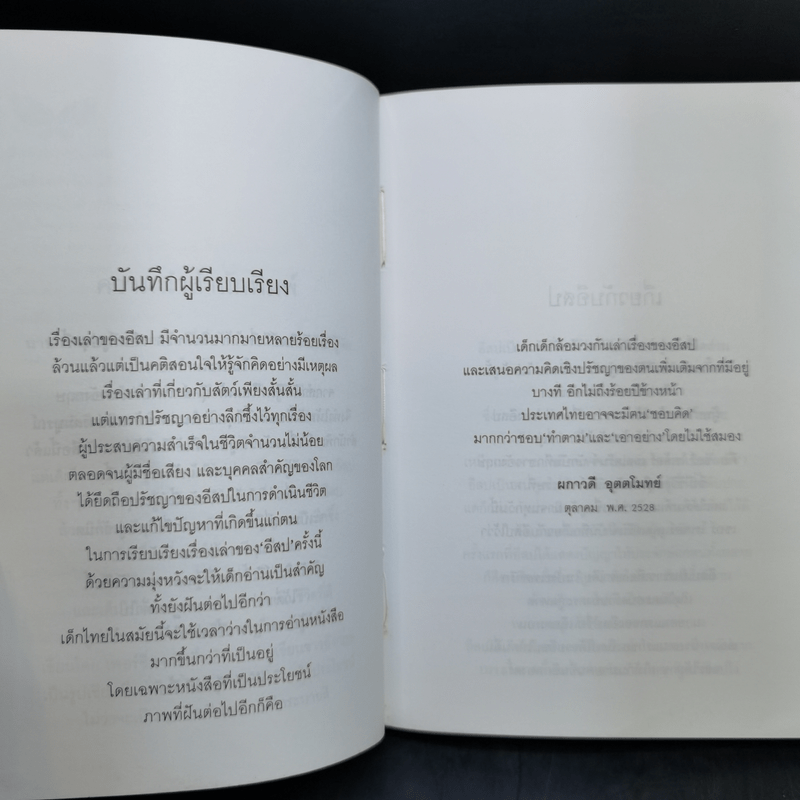 บันทึกผู้เรียบเรียง
เรื่องเล่าของอีสป มีจำนวนมากมายหลายร้อยเรื่อง
ล้วนแล้วแต่เป็นคติสอนใจให้รู้จักคิดอย่างมีเหตุผล
เรื่องเล่าที่เกี่ยวกับสัตว์เพียงสั้นสั้น
แต่แทรกปรัชญาอย่างลึกซึ้งไว้ทุกเรื่อง
ผู้ประสบความสำเร็จในชีวิตจำนวนไม่น้อย
ตลอดจนผู้มีชื่อเสียง และบุคคลสำคัญของโลก
ได้ยึดถือปรัชญาของอีสปในการดำเนินชีวิต
และแก้ไขปัญหาที่เกิดขึ้นแก่ตน
ในการเรียบเรียงเรื่องเล่าของ‘อีสป’ครั้งนี้
ด้วยความมุ่งหวังจะให้เด็กอ่านเป็นสำคัญ
ทั้งยังฝันต่อไปอีกว่า
เด็กไทยในสมัยนี้จะใช้เวลาว่างในการอ่านหนังสือ
มากขึ้นกว่าที่เป็นอยู่
โดยเฉพาะหนังสือที่เป็นประโยชน์
ภาพที่ฝันต่อไปอีกก็คือ
เด็กเด็กล้อมวงกันเล่าเรื่องของอีสป
และเสนอความคิดเชิงปรัชญาของตนเพิ่มเติมจากที่มีอยู่
บางที อีกไม่ถึงร้อยปีข้างหน้า
ประเทศไทยอาจจะมีคน‘ชอบคิด’
มากกว่าชอบ‘ทำตาม’และ‘เอาอย่าง’โดยไม่ใช้สมอง
ผกาวดี อุตตโมทย์
ตุลาคม พ.ศ. 2528